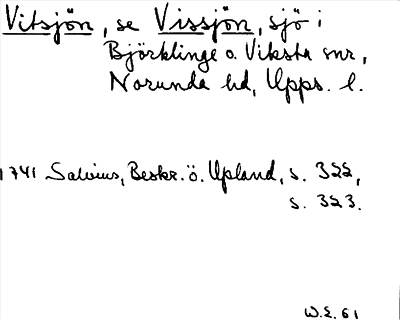 Vitsjön, se Vissjön, sjö i
Björklinge o. Viksta snr,
Norunda hd, Upps. l.
1741 Salvius, Beskr. ö. Upland, s. 322,
s. 323.
W.E. 61